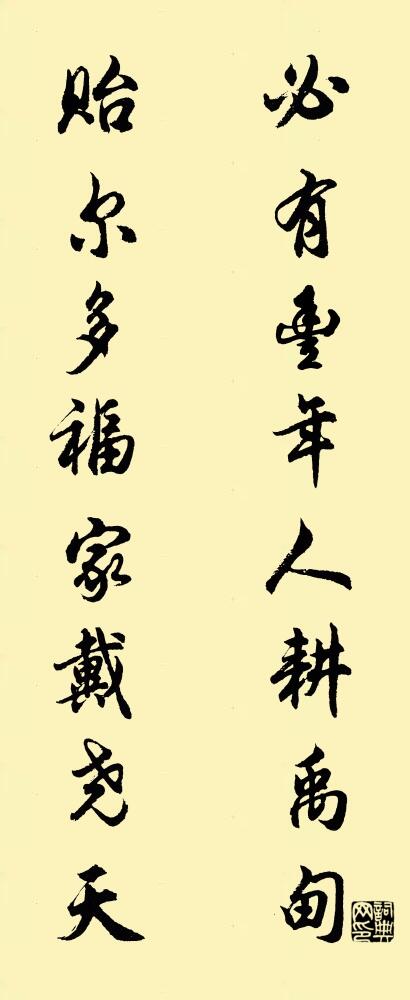 必有豐年人耕禹甸
贻尔多福家戴尧天
詞典网印